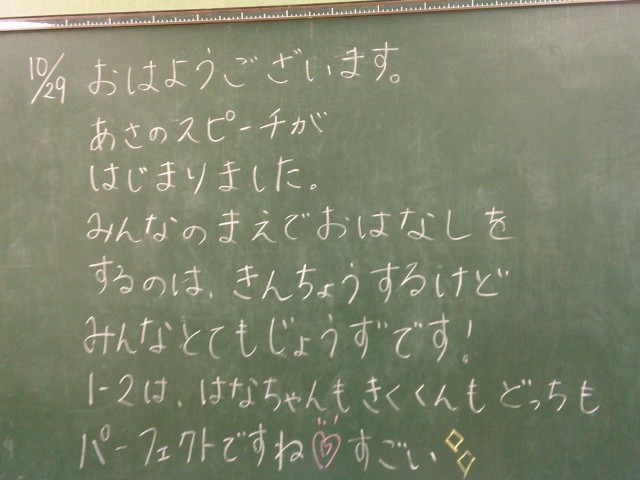 10/29 おはようございます。
あさのスピーチが
はじまりました。
みんなのまえでおはなしを
するのは、きんちょうするけど
みんなとてもじょうずです!
1-2は、はなちゃんもきくくんもどっちも
パーフェクトですね♡すごい